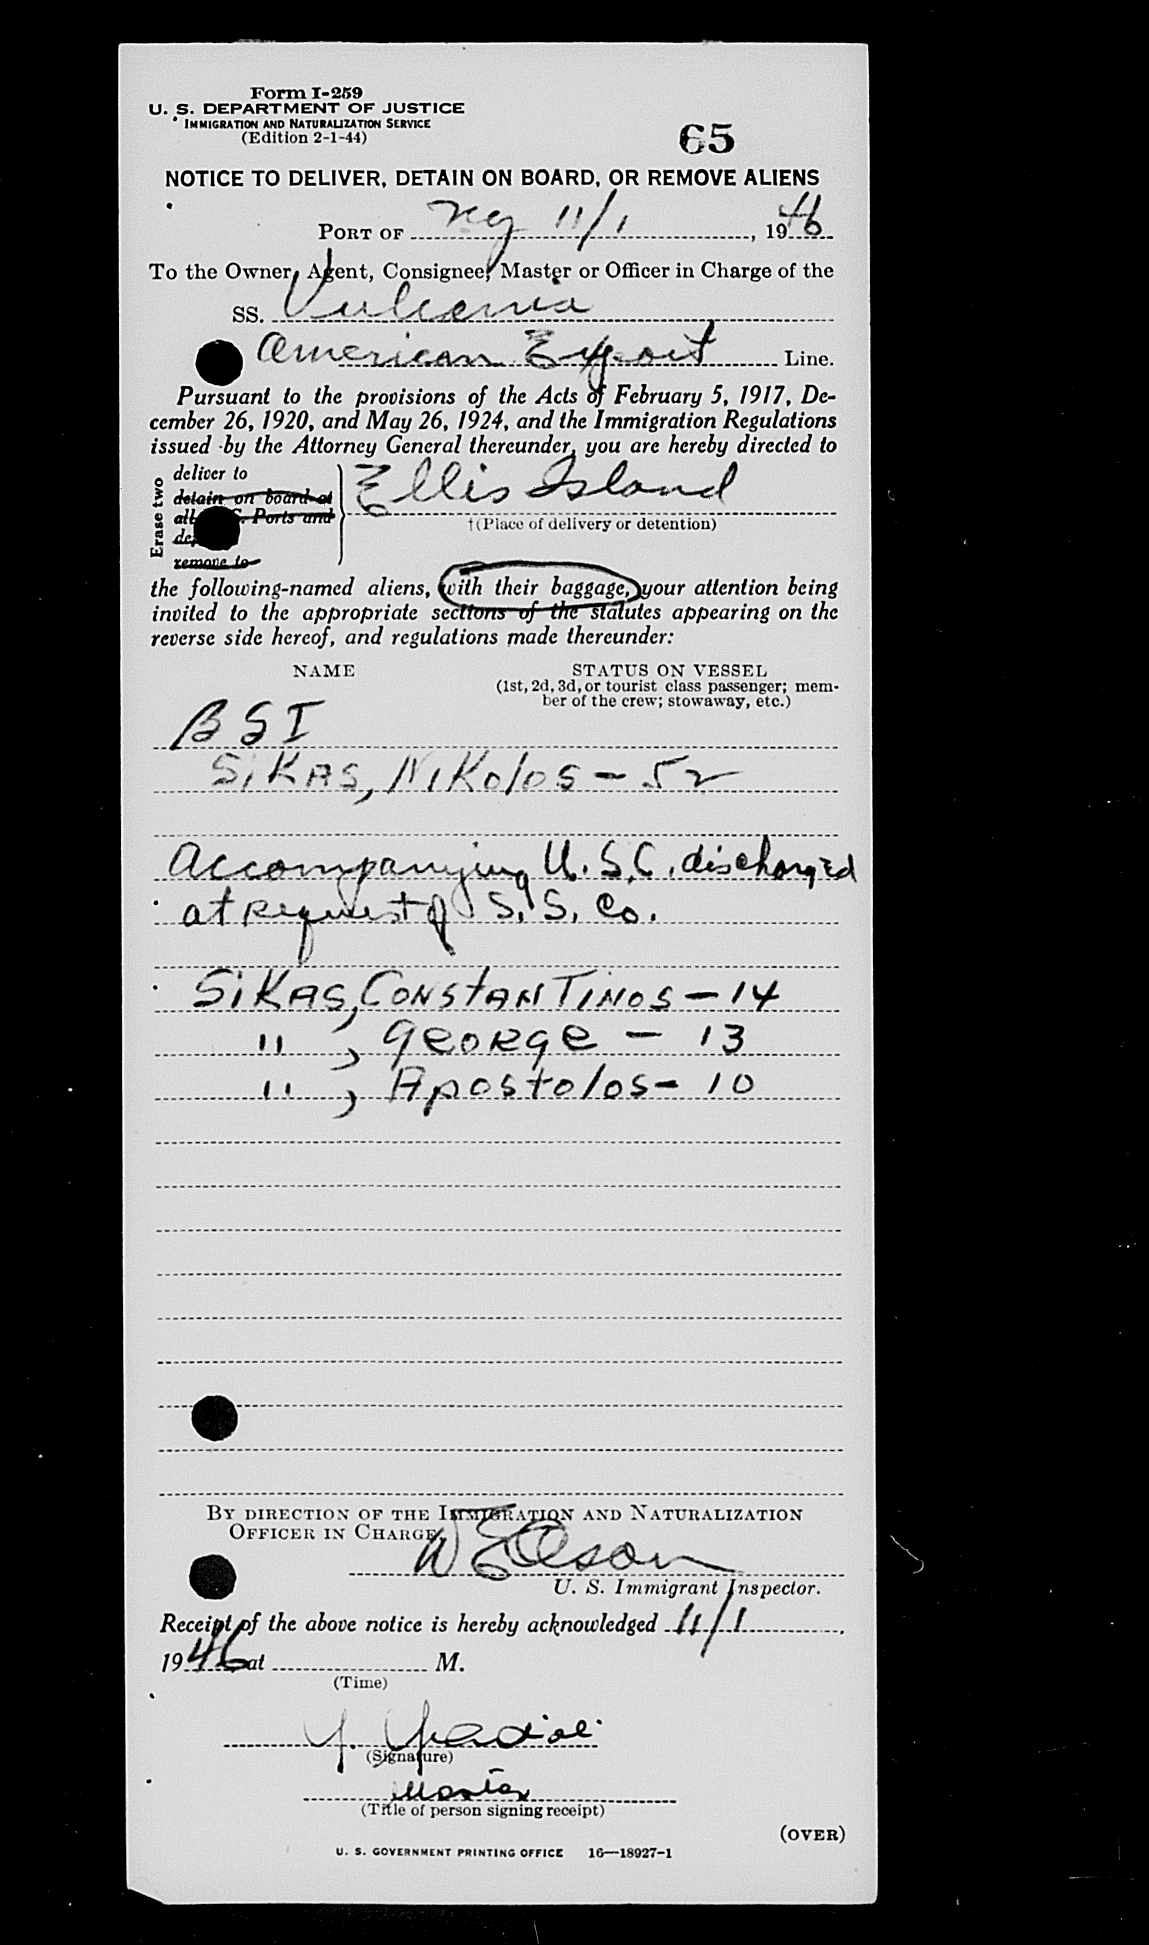 Form I-259
U. S. DEPARTMENT OF JUSTICE
IMMIGRATION AND NATURALIZATION SERVICE
(Edition 2-1-44)
65
NOTICE TO DELIVER, DETAIN ON BOARD, OR REMOVE ALIENS
PORT OF NY 11/1, 1946
To the Owner, Agent, Consignee, Master or Officer in Charge of the
SS. Vulcania
American Export Line.
Pursuant to the provisions of the Acts of February 5, 1917, De-
cember 26, 1920, and May 26, 1924, and the Immigration Regulations
issued by the Attorney General thereunder, you are hereby directed to
Erase two
deliver to
detain on board at
all S. Ports and
remove to
Ellis Island
†(Place of delivery or detention)
the following-named aliens, with their baggage, your attention being
invited to the appropriate sections of the statutes appearing on the
reverse side hereof, and regulations made thereunder:
NAME STATUS ON VESSEL
(1st, 2d, 3d, or tourist class passenger; mem-
ber of the crew; stowaway, etc.)
BSI
SiKAS, NiKolos - 52
Accompanying U.S.C. discharged
at Request of S.S. Co.
SiKAS, CONSTANTINOS - 14
" , GEORGE - 13
" , Apostolos - 10
BY DIRECTION OF THE IMMIGRATION AND NATURALIZATION
OFFICER IN CHARGE,
U. S. Immigrant Inspector.
Receipt of the above notice is hereby acknowledged 11/1,
1946 at M.
(Time)
(Signature)
Master
(Title of person signing receipt)
(OVER)
U. S. GOVERNMENT PRINTING OFFICE 16—18927-1